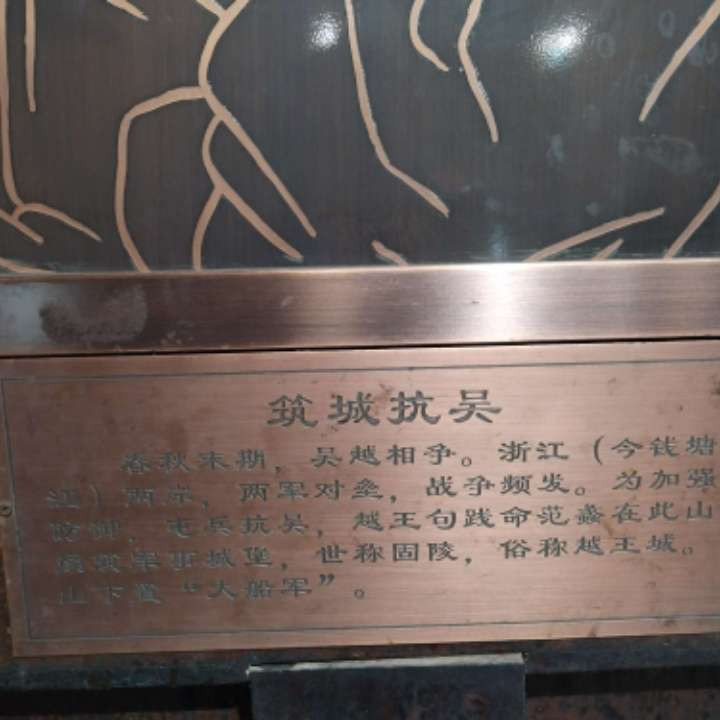 筑城抗吴
春秋末期，吴越相争。浙江（今钱塘
江）两岸，两军对垒，战争频发。为加强
防御，屯兵抗吴，越王句践命范蠡在此山
顶筑军事城堡，世称固陵，俗称越王城。
山下置“大船军”。